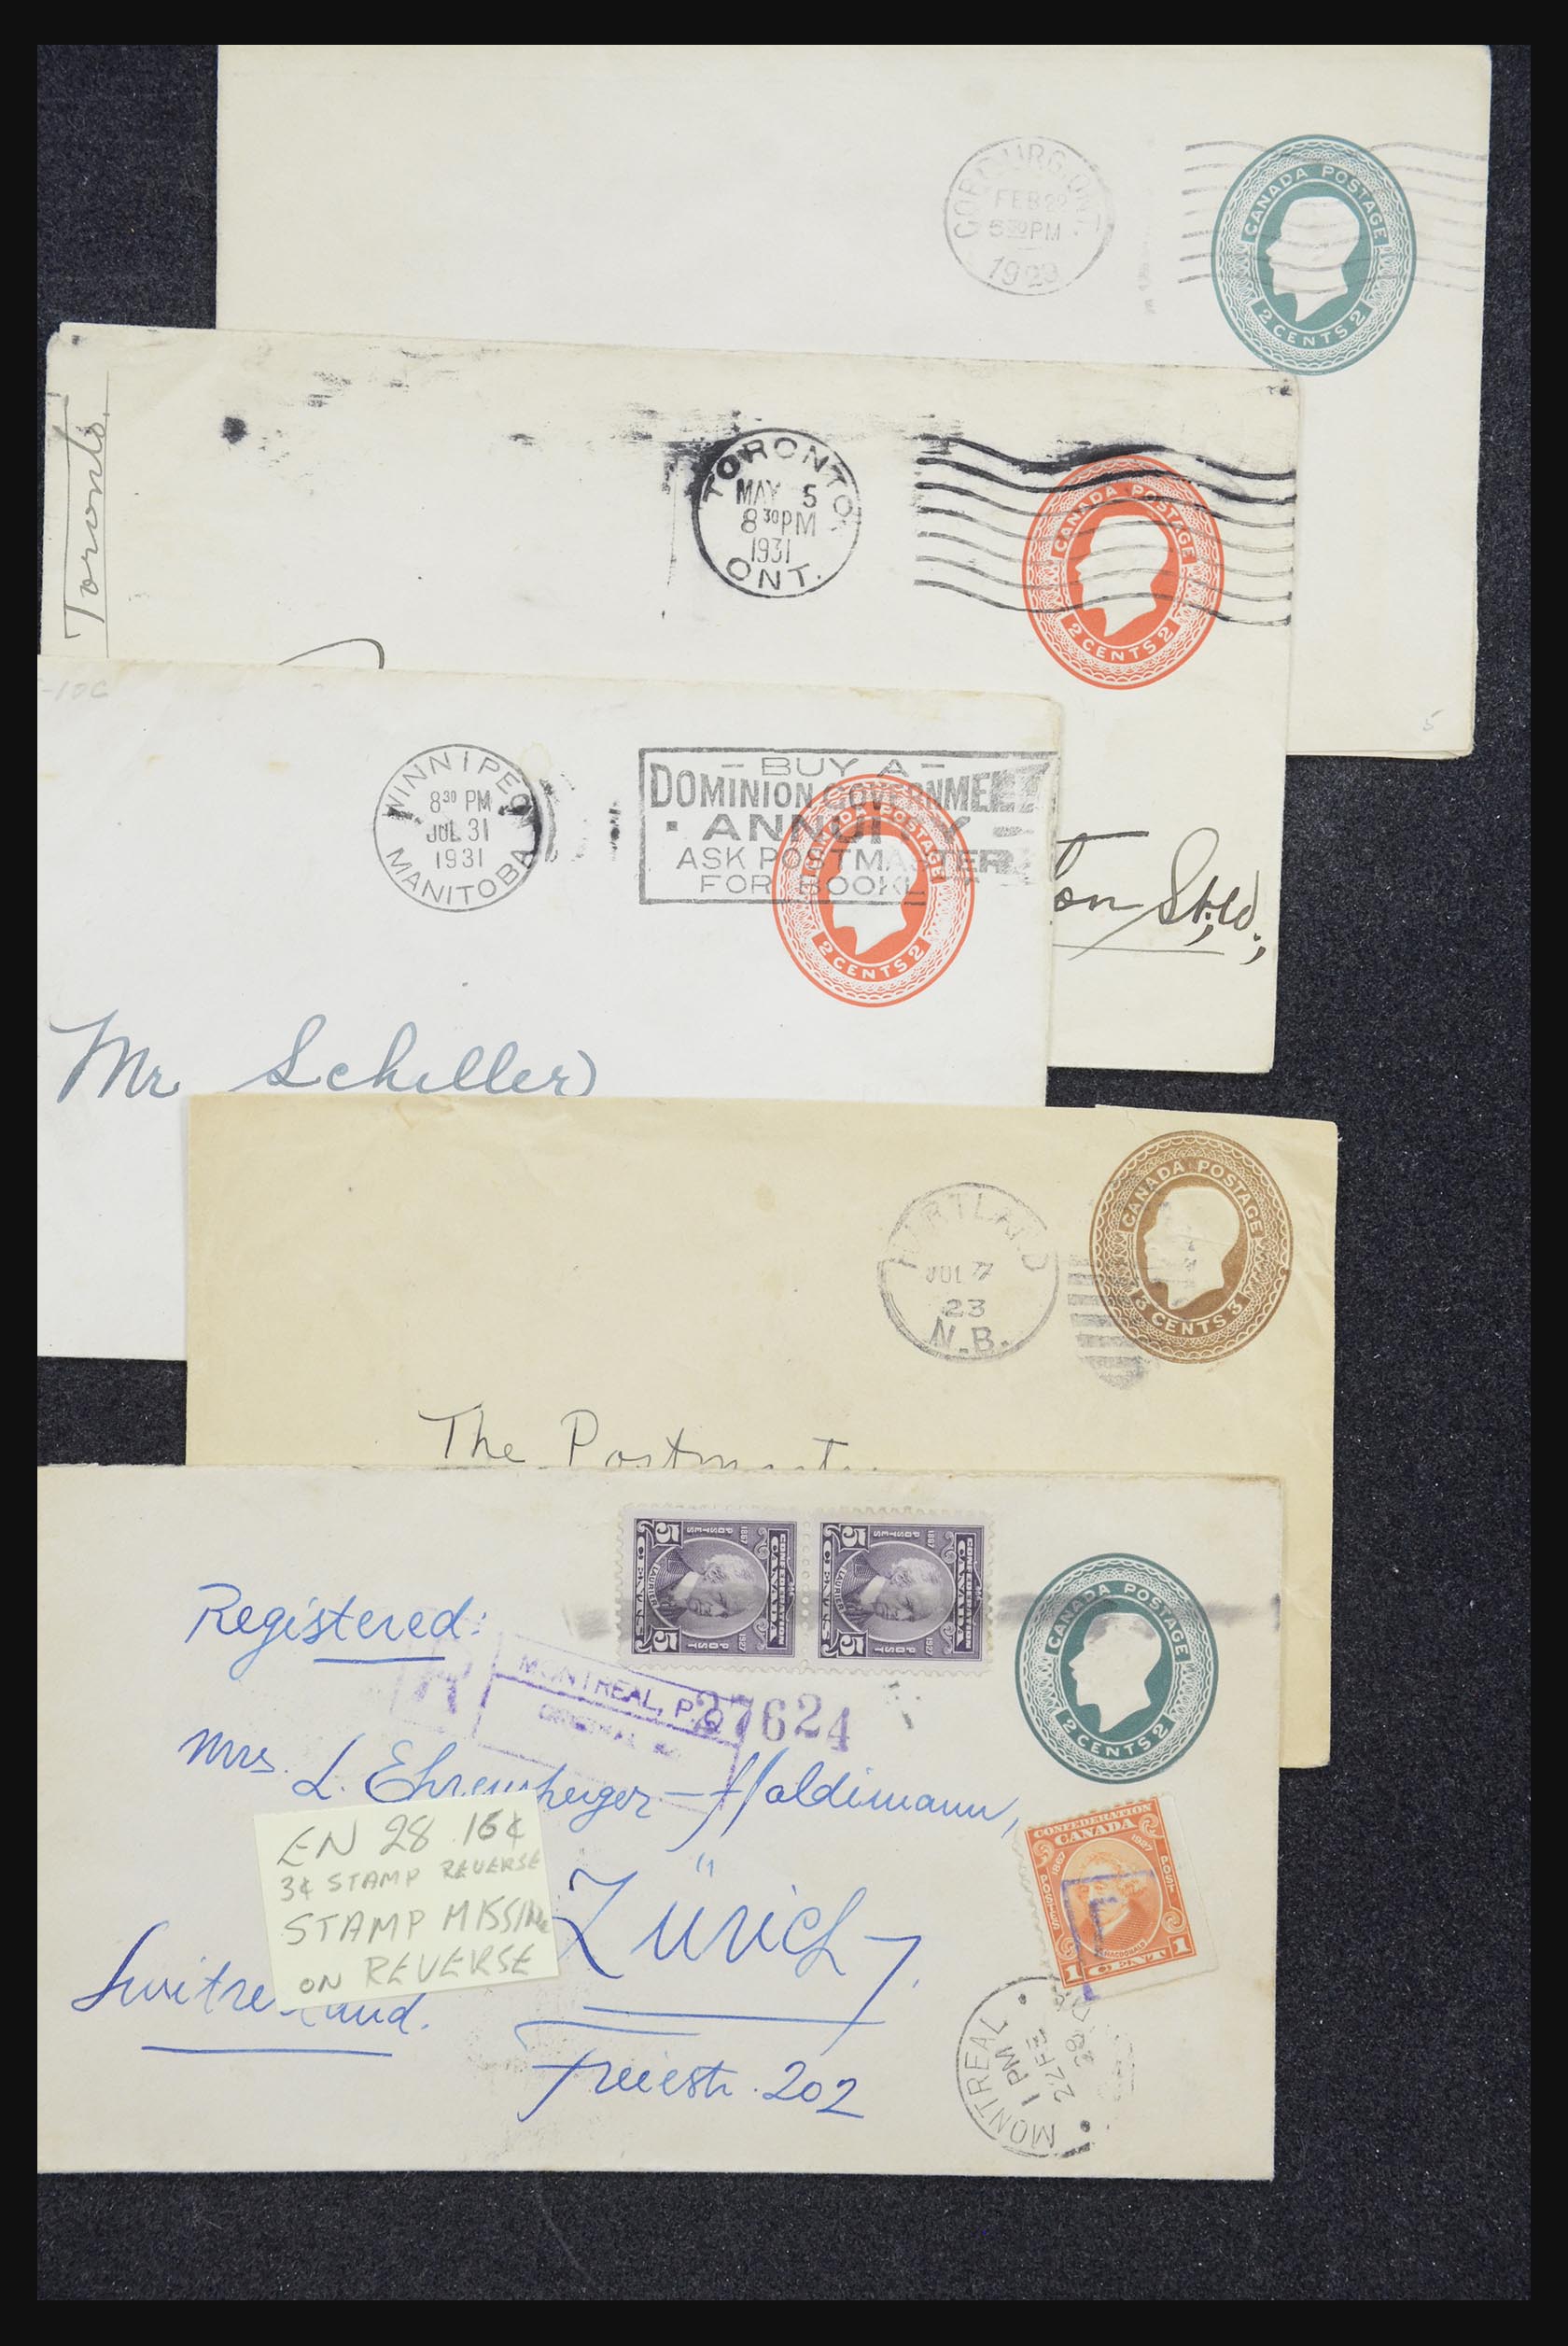 COBOURG. ONT
FEB 22
5 30 PM
1929
CANADA POSTAGE
2 CENTS 2
5
Toronto.
TORONTO
MAY 5
8 30 PM
1931
ONT.
CANADA POSTAGE
2 CENTS 2
on St.
-10C
WINNIPEG
8 30 PM
JUL 31
1931
MANITOBA
- BUY A -
DOMINION GOVERNMENT
· ANNUITY -
ASK POSTMASTER
FOR BOOKL
CANADA POSTAGE
2 CENTS 2
Mr Schiller
HARTLAND
JUL 7
23
N.B.
CANADA POSTAGE
3 CENTS 3
The Postmaster
5 CENTS 5
CONFEDERATION
CANADA
LAURIER
1867 1927
POSTES POST
5 CENTS 5
CONFEDERATION
CANADA
LAURIER
1867 1927
POSTES POST
CANADA POSTAGE
2 CENTS 2
Registered:
R
MONTREAL, P.Q.
ORIGINAL No
27624
Mrs. L. Ehrensperger-Haldimann,
EN 28 16¢
3¢ STAMP REVERSE
STAMP MISSING
ON REVERSE
Zürich 7.
Switzerland.
Freiestr. 202
CONFEDERATION
CANADA
1867 1927
POSTES POST
MACDONALD
1 CENT 1
MONTREAL
1 PM
22 FE
28